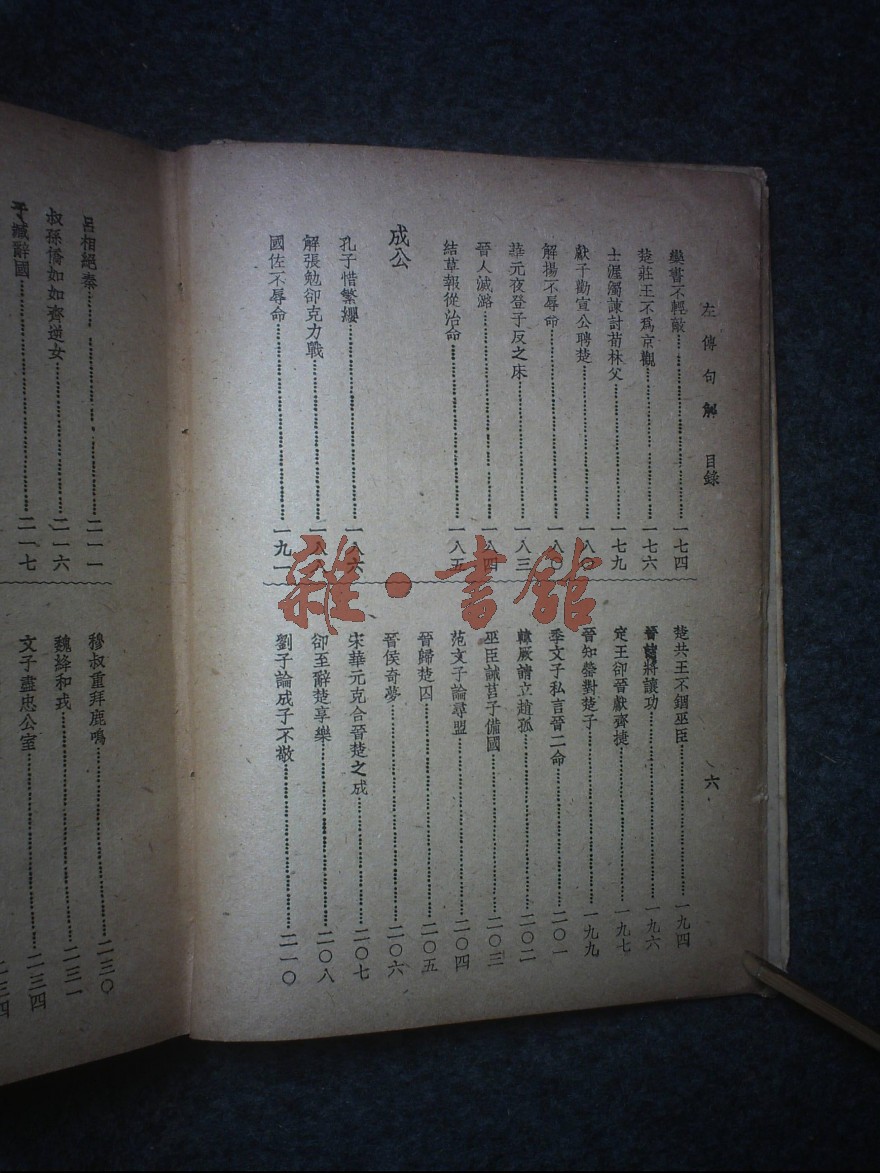 左傳句解 目錄
六
欒書不輕敵 一七四
楚莊王不爲京觀 一七六
士渥濁諫討荀林父 一七九
獻子勸宣公聘楚 一八〇
解揚不辱命 一八〇
華元夜登子反之床 一八三
晉人滅潞 一八四
結草報從治命 一八五
成公
孔子惜繁纓 一八六
解張勉卻克力戰 一八八
國佐不辱命 一九一
楚共王不錮巫臣 一九四
晉諸將讓功 一九六
定王卻晉獻齊捷 一九七
晉知罃對楚子 一九九
季文子私言晉二命 二〇一
韓厥請立趙孤 二〇二
巫臣誡莒子備國 二〇三
范文子論尋盟 二〇四
晉歸楚囚 二〇五
晉侯奇夢 二〇六
宋華元克合晉楚之成 二〇七
卻至辭楚享樂 二〇八
劉子論成子不敬 二一〇
呂相絕秦 二一一
叔孫僑如如齊逆女 二一六
子臧辭國 二一七
穆叔重拜鹿鳴 二三〇
魏絳和戎 二三一
文子盡忠公室 二三四
二三四
雜·書館